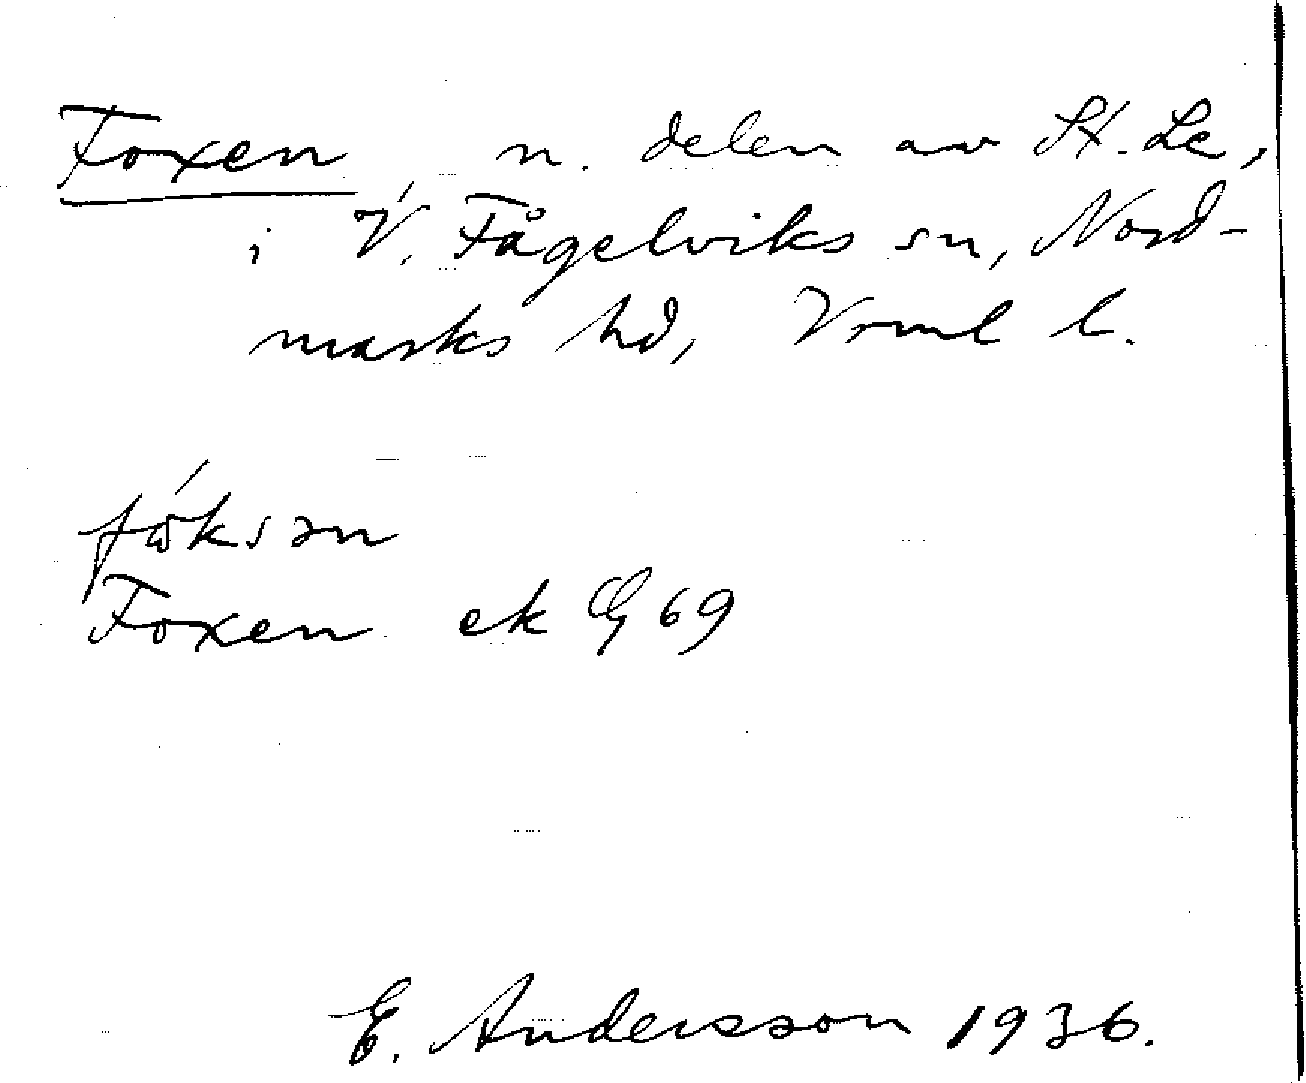 Foxen, n. delen av St. Le,
i V. Fågelviks sn, Nord-
marks hd, Vrml l.
fóksən
Foxen ek G 69
E. Andersson 1936.